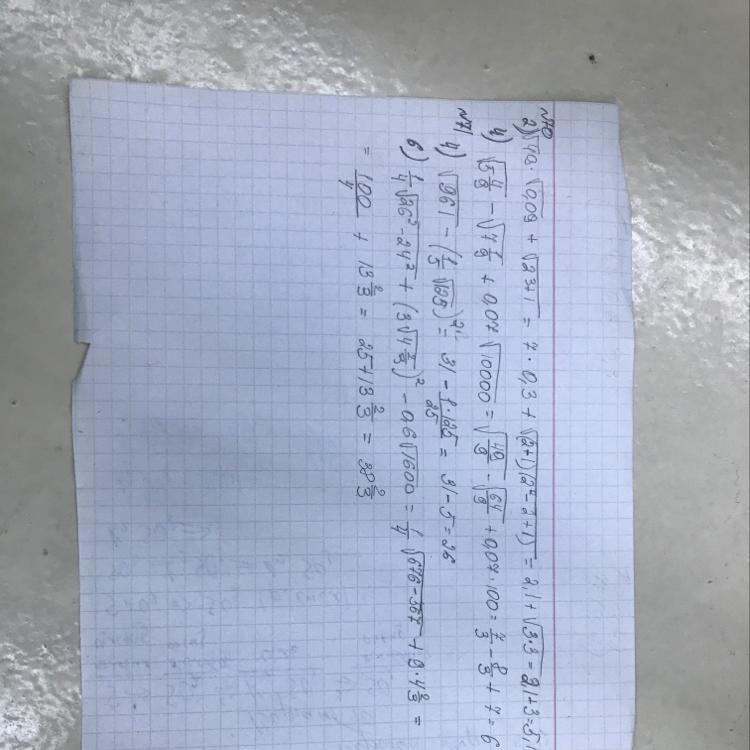 N70
2) √49 · √0,09 + √2³+1 = 7 · 0,3 + √(2+1)(2²-2+1) = 2,1 + √3·3 = 2,1+3=5,1
4) √5 4/9 - √7 1/9 + 0,07√10000 = √49/9 - √64/9 + 0,07·100 = 7/3 - 8/3 + 7 = 6
N71
4) √961 - (1/5 √125)² = 31 - 1·125/25 = 31-5=26
6) 1/4 √26²-24² + (3√4 2/3)² - 0,6√1600 = 1/4 √676-567 + 9·4 2/3 =
= 100/4 + 13 2/3 = 25+13 2/3 = 38 2/3